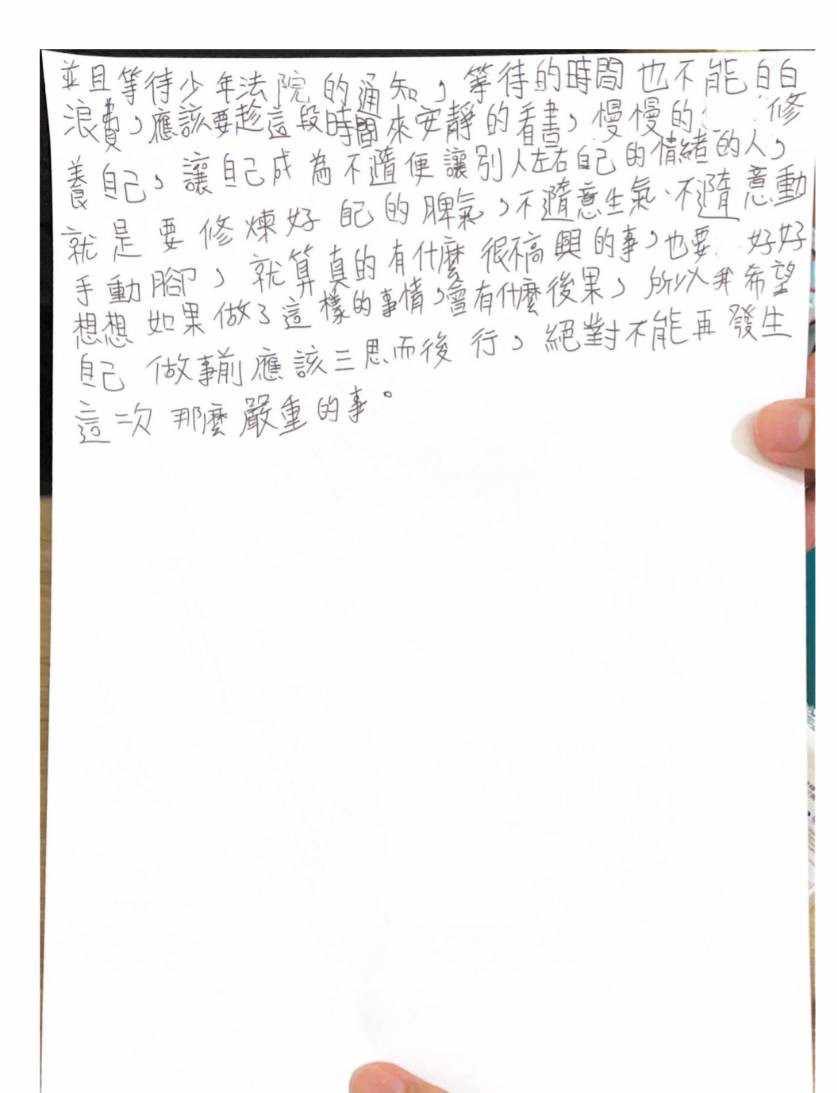 並且等待少年法院的通知，等待的時間也不能白白
浪費，應該要趁這段時間來安靜的看書，慢慢的修
養自己，讓自己成為不隨便讓別人左右自己的情緒的人，
就是要修煉好自己的脾氣，不隨意生氣、不隨意動
手動腳，就算真的有什麼很不高興的事，也要好好
想想如果做了這樣的事情，會有什麼後果，所以我希望
自己做事前應該三思而後行，絕對不能再發生
這一次那麼嚴重的事。